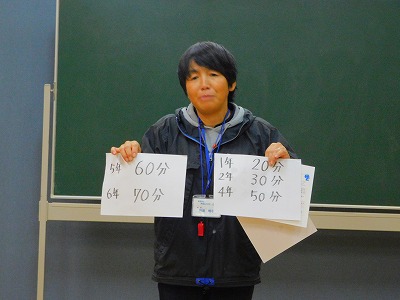 5年 60分
6年 70分
1年 20分
2年 30分
4年 50分